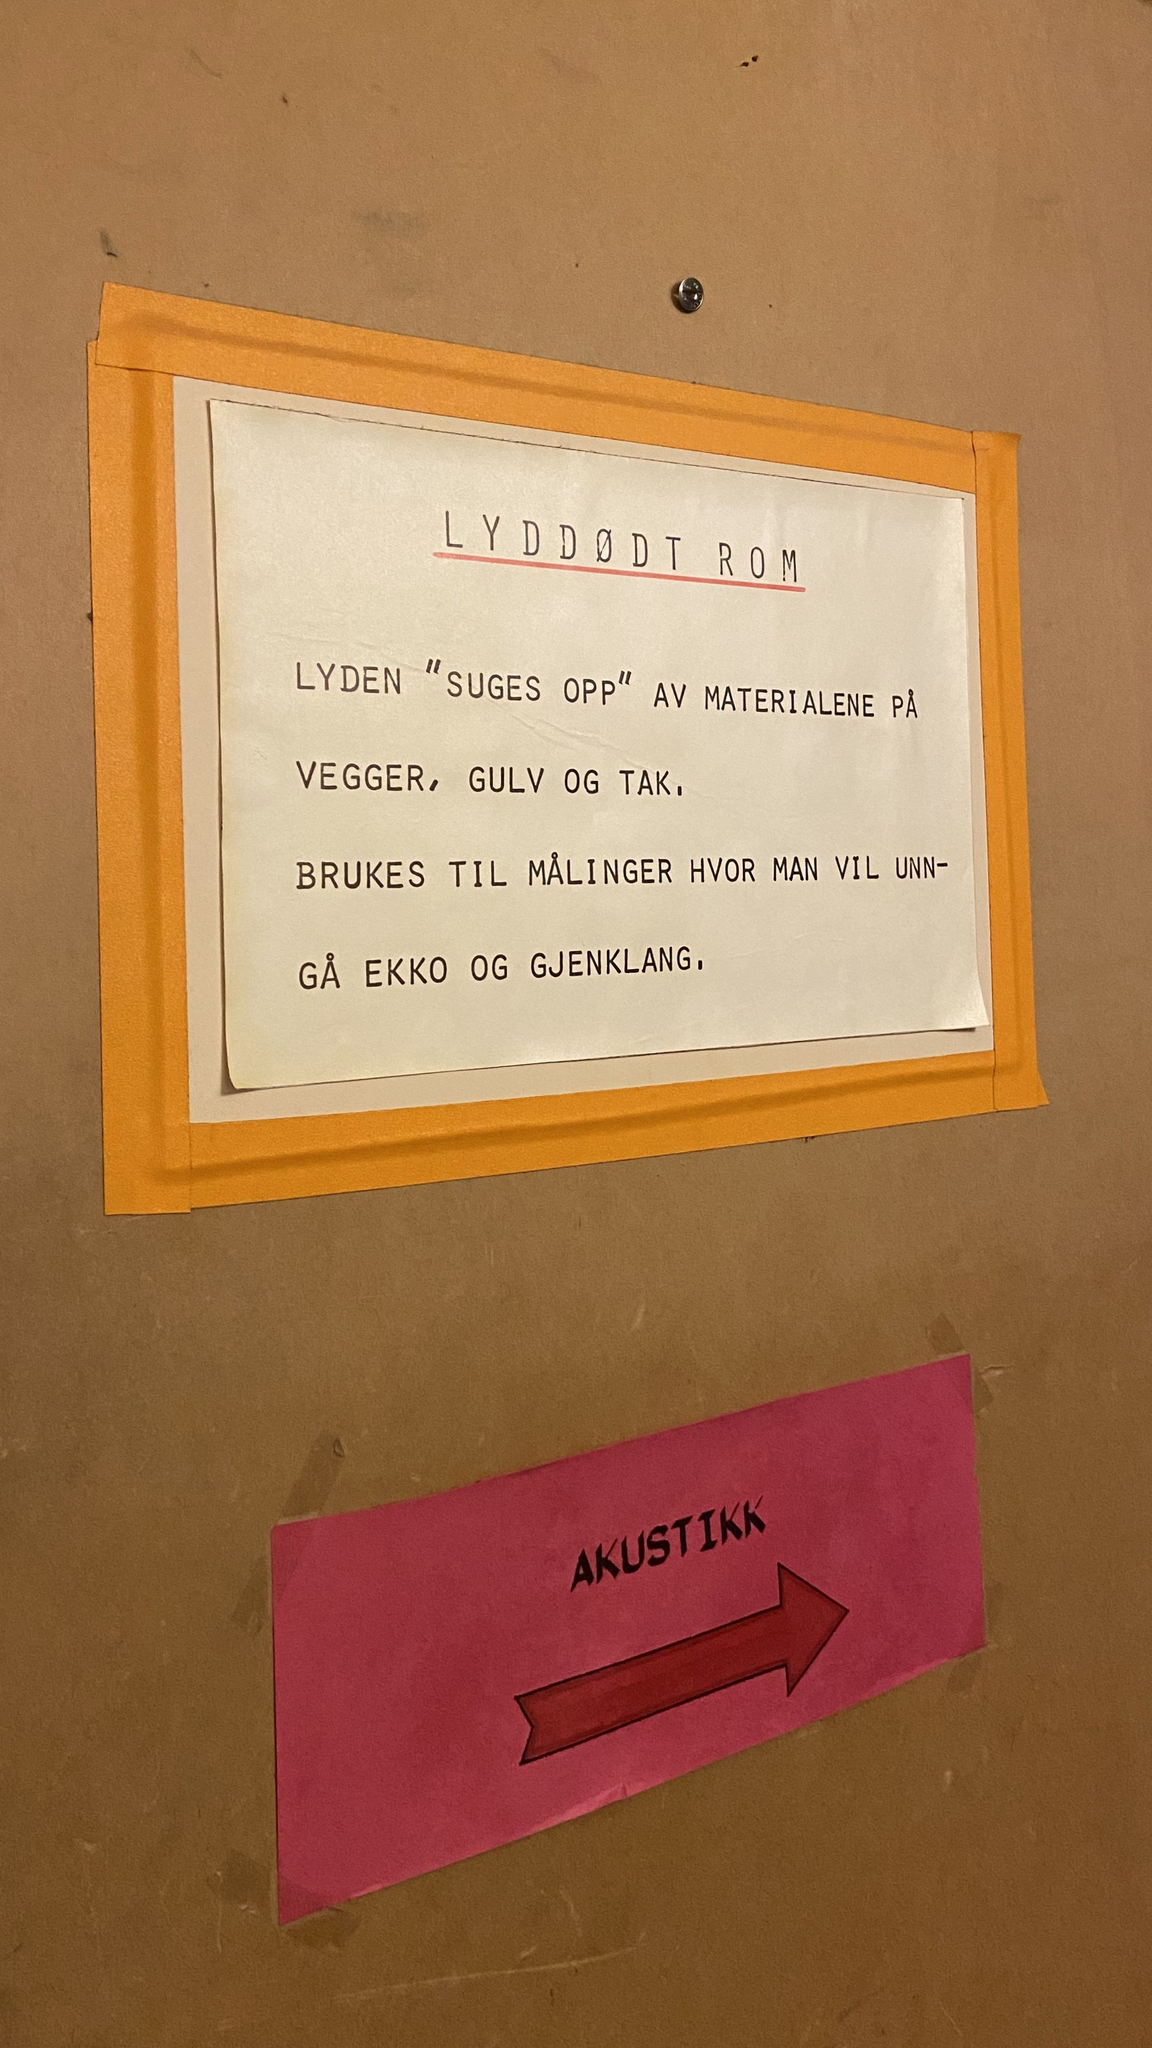 LYDDØDT ROM
LYDEN "SUGES OPP" AV MATERIALENE PÅ
VEGGER, GULV OG TAK.
BRUKES TIL MÅLINGER HVOR MAN VIL UNN-
GÅ EKKO OG GJENKLANG.
AKUSTIKK